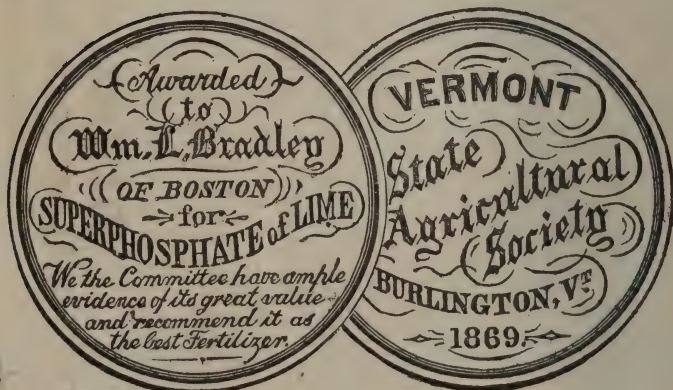 Awarded
to
Wm. L. Bradley
OF BOSTON
for
SUPERPHOSPHATE of LIME
We the Committee have ample
evidence of its great value
and recommend it as
the best Fertilizer.
VERMONT
State
Agricultural
Society
BURLINGTON, VT.
1869.